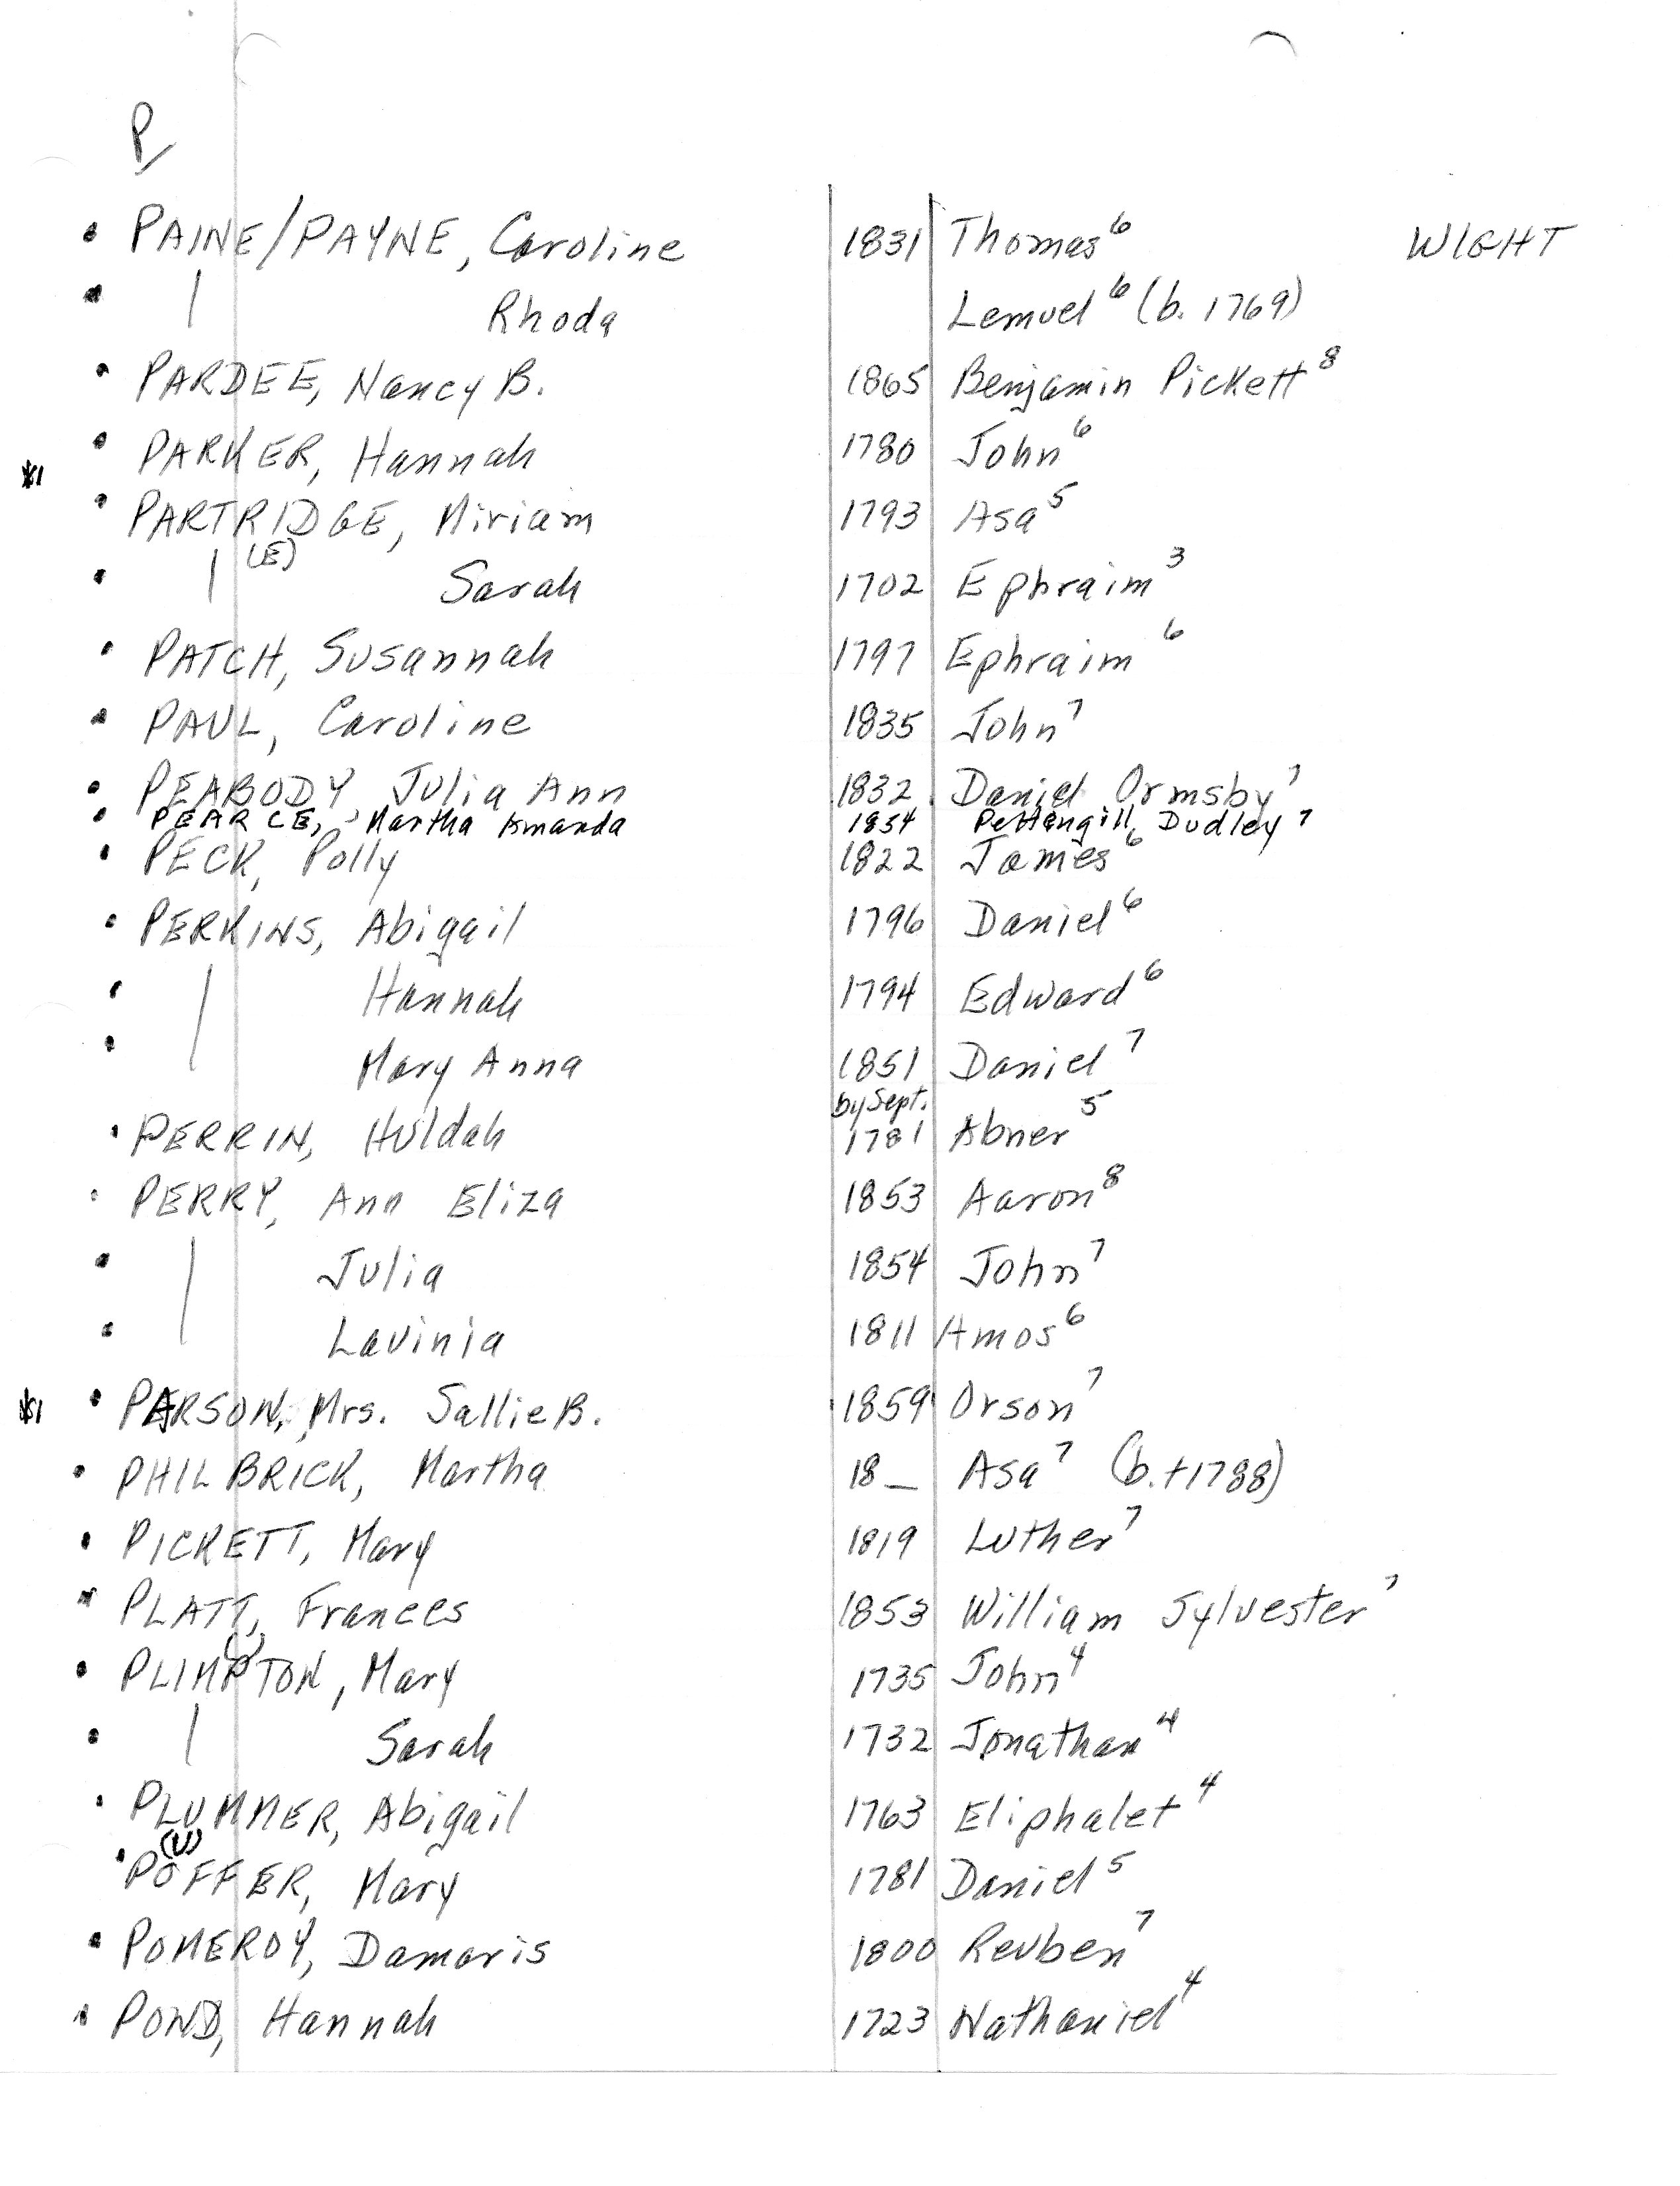 P
PAINE/PAYNE, Caroline 1831 Thomas⁶ WIGHT
Rhoda Lemuel⁶ (b. 1769)
PARDEE, Nancy B. 1865 Benjamin Pickett⁸
PARKER, Hannah 1780 John⁶
PARTRIDGE, Miriam 1793 Asa⁵
(E)
Sarah 1702 Ephraim³
PATCH, Susannah 1797 Ephraim⁶
PAUL, Caroline 1835 John⁷
PEABODY, Julia Ann 1832 Daniel Ormsby⁷
PEARCE, Martha Amanda 1854 Pettengill Dudley⁷
PECK, Polly 1822 James⁶
PERKINS, Abigail 1796 Daniel⁶
Hannah 1794 Edward⁶
Mary Anna 1851 Daniel⁷
by Sept.
PERRIN, Huldah 1781 Abner⁵
PERRY, Ann Eliza 1853 Aaron⁸
Julia 1854 John⁷
Lavinia 1811 Amos⁶
PARSON, Mrs. Sallie B. 1859 Orson⁷
PHILBRICK, Martha 18_ Asa⁷ (b. +1788)
PICKETT, Mary 1819 Luther⁷
PLATT, Frances 1853 William Sylvester⁷
PLIMPTON, Mary 1735 John⁴
Sarah 1732 Jonathan⁴
PLUMMER, Abigail 1763 Eliphalet⁴
(U)
POFFER, Mary 1781 Daniel⁵
POMEROY, Damaris 1800 Reuben⁷
POND, Hannah 1723 Nathaniel⁴